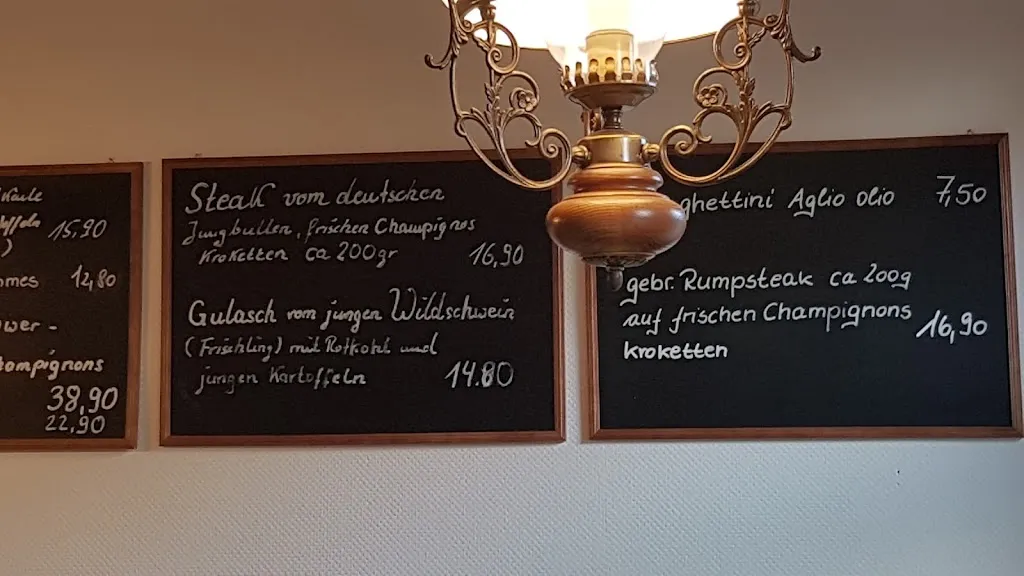 15,90
12,80
38,90
22,90
Steak vom deutschen
Jungbullen, frischen Champignos
Kroketten ca 200gr 16,90
Gulasch vom jungen Wildschwein
(Frischling) mit Rotkohl und
jungen Kartoffeln 14.80
ghettini Aglio olio 7,50
gebr. Rumpsteak ca 200g
auf frischen Champignons
kroketten 16,90